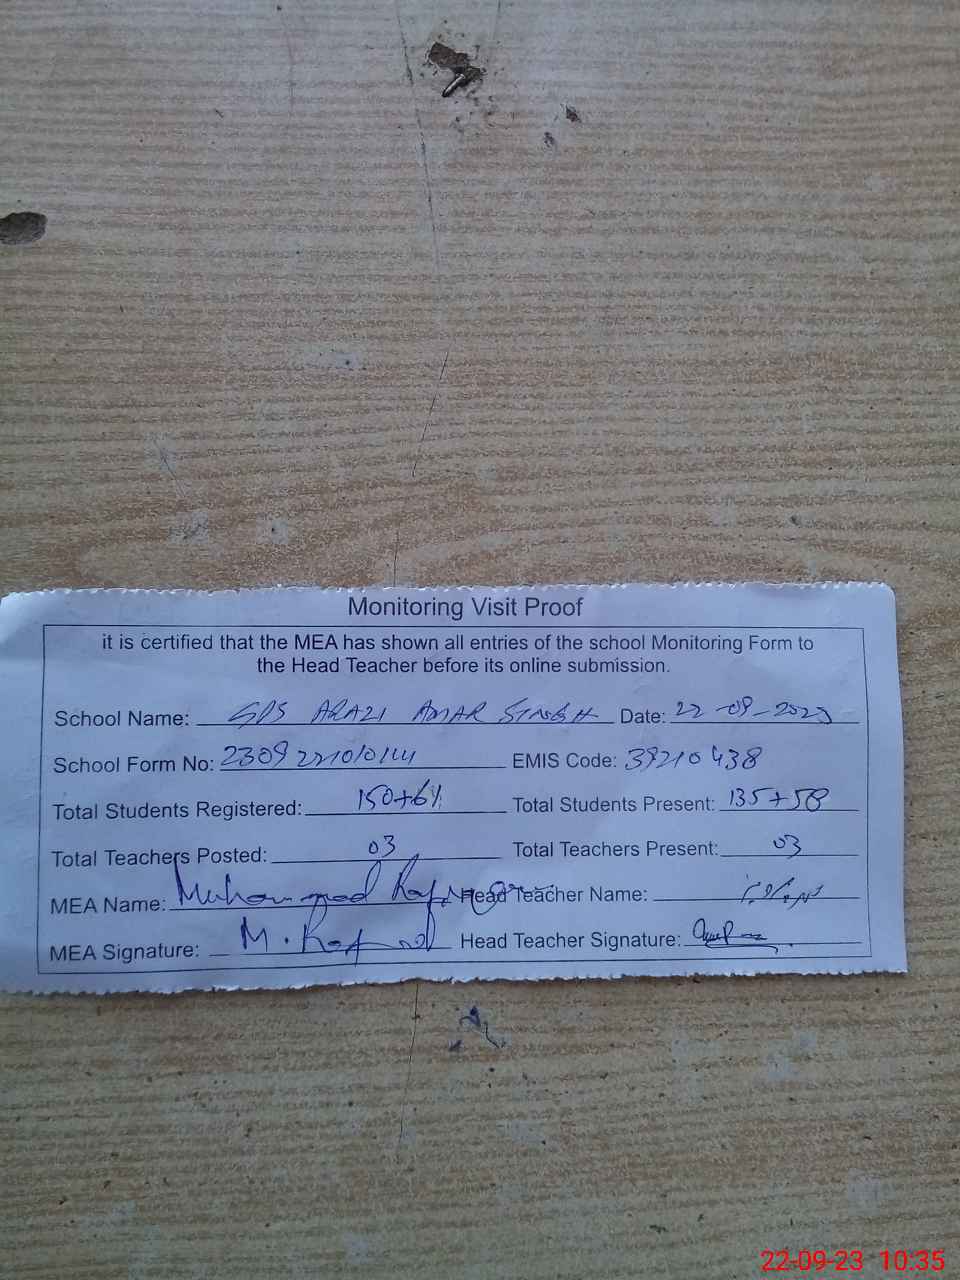 Monitoring Visit Proof
it is certified that the MEA has shown all entries of the school Monitoring Form to
the Head Teacher before its online submission.
School Name: GPS ARAZI AMAR SINGH Date: 22-09-2023
School Form No: EMIS Code: 39210438
Total Students Registered: 150+61 Total Students Present: 135+58
Total Teachers Posted: 03 Total Teachers Present: 03
MEA Name: Muhammad Head Teacher Name:
MEA Signature: M. Head Teacher Signature:
22-09-23 10:35